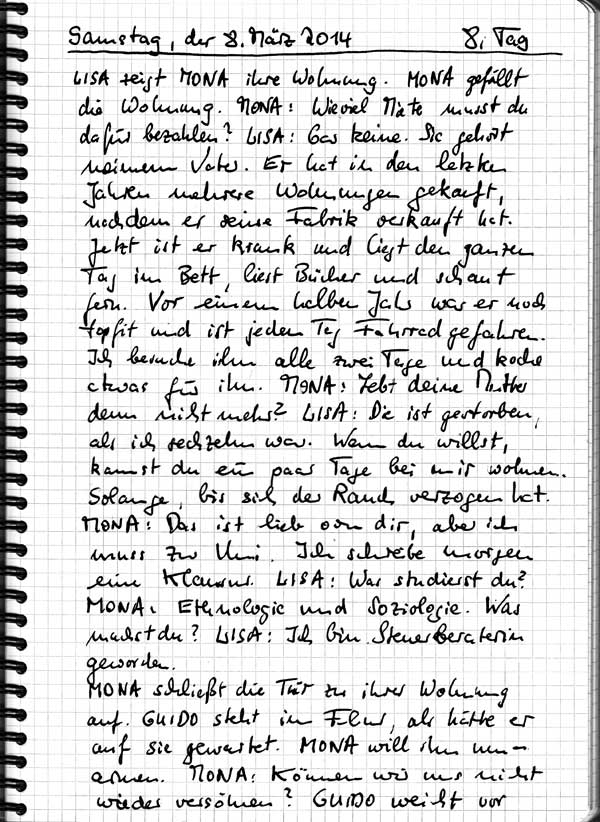 Samstag, der 8. März 2014 8. Tag
LISA zeigt MONA ihre Wohnung. MONA gefällt
die Wohnung. MONA: Wieviel Miete musst du
dafür bezahlen? LISA: Gar keine. Sie gehört
meinem Vater. Er hat in den letzten
Jahren mehrere Wohnungen gekauft,
nachdem er seine Fabrik verkauft hat.
Jetzt ist er krank und liegt den ganzen
Tag im Bett, liest Bücher und schaut
fern. Vor einem halben Jahr war er noch
topfit und ist jeden Tag Fahrrad gefahren.
Ich besuche ihn alle zwei Tage und koche
etwas für ihn. MONA: Lebt deine Mutter
denn nicht mehr? LISA: Die ist gestorben,
als ich sechzehn war. Wenn du willst,
kannst du ein paar Tage bei mir wohnen.
Solange, bis sich der Rauch verzogen hat.
MONA: Das ist lieb von dir, aber ich
muss zur Uni. Ich schreibe morgen
eine Klausur. LISA: Was studierst du?
MONA: Ethnologie und Soziologie. Was
machst du? LISA: Ich bin Steuerberaterin
geworden.
MONA schließt die Tür zu ihrer Wohnung
auf. GUIDO steht im Flur, als hätte er
auf sie gewartet. MONA will ihn um-
armen. MONA: Können wir uns nicht
wieder versöhnen? GUIDO weicht vor